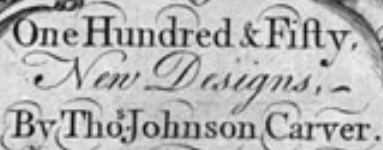 One Hundred & Fifty,
New Designs,
By Thoˢ. Johnson Carver.